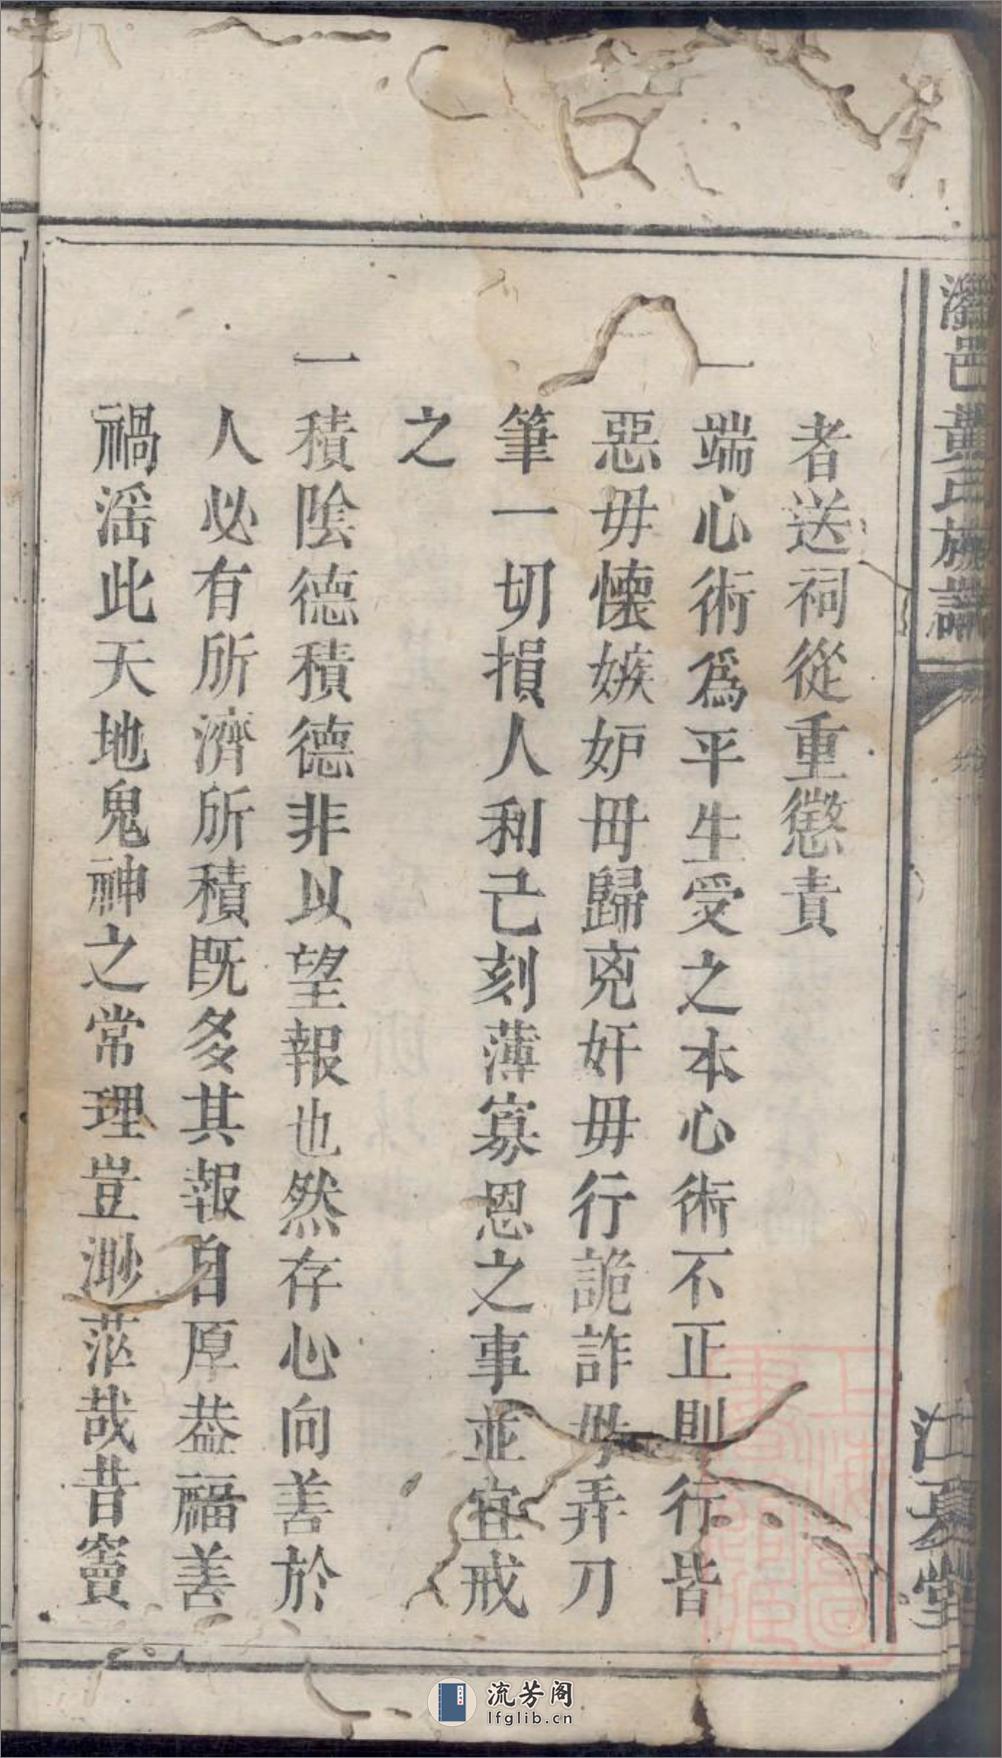 邑黃氏族譜
江夏堂
者送祠從重懲責
一端心術爲平生受之本心術不正則行皆
惡毋懐嫉妒毋歸兇奸毋行詭詐毋弄刀
筆一切損人利己刻薄寡恩之事並宜戒
之
一積陰德積德非以望報也然存心向善於
人必有所濟所積既多其報自厚葢福善
禍滛此天地鬼神之常理豈渺茫哉昔竇
流芳阁
lfglib.cn